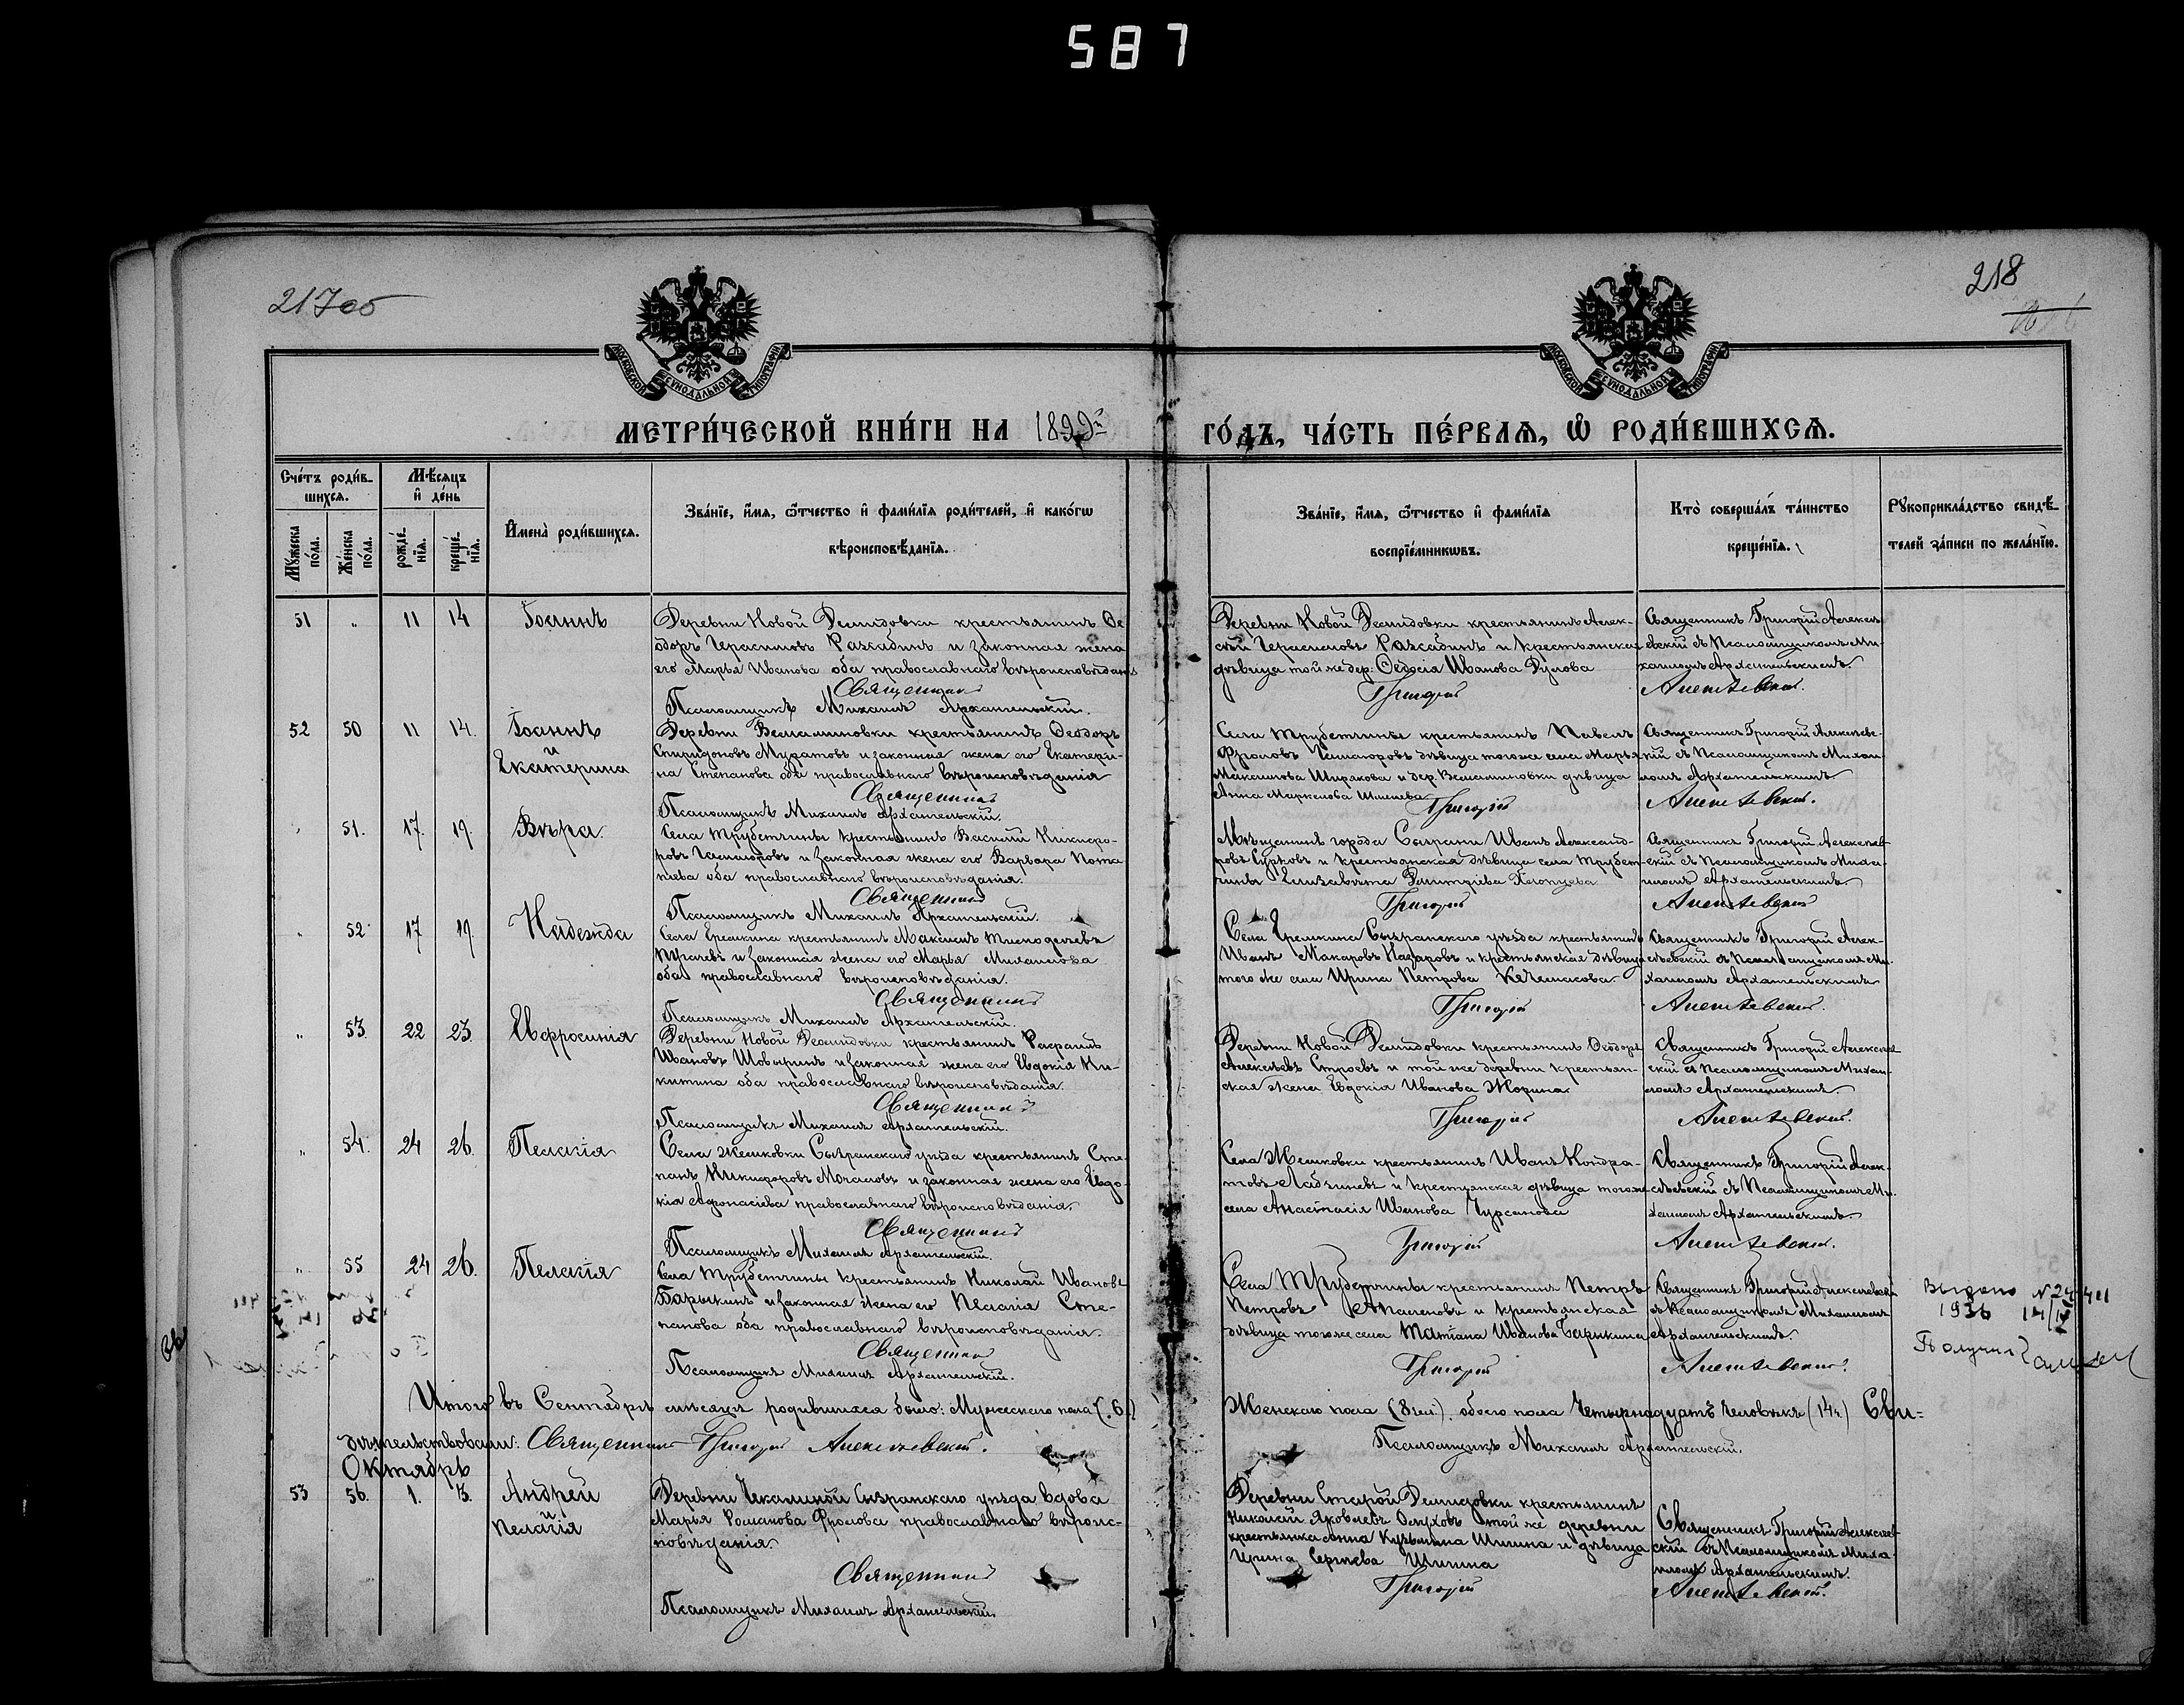 587
217об
218
МОСКОВСКОЙ СѴНОДАЛЬНОЙ ТИПОГРАФІИ
МОСКОВСКОЙ СѴНОДАЛЬНОЙ ТИПОГРАФІИ
МЕТРИ́ЧЕСКОЙ КНИ́ГИ НА 1899й ГО́ДЪ, ЧА́СТЬ ПЕ́РВАЯ, Ѡ҆ РОДИ́ВШИХСЯ.
Сче́тъ роди́в-
шихся.
Мꙋ́жеска по́ла.
Же́нска по́ла.
Мѣ́сяцъ
и҆ де́нь
рожде́-
нїя.
креще́-
нїя.
И҆мена̀ роди́вшихся.
Зва́нїе, и҆́мя, ѻ҆́тчество и҆ фами́лїя роди́телей, и҆ како́гѡ
вѣроисповѣ́данїя.
Зва́нїе, и҆́мя, ѻ҆́тчество и҆ фами́лїя
воспрїе́мникѡвъ.
Кто̀ соверша́лъ та́инство
креще́нїя.
Рꙋкоприкла́дство свидѣ́-
телей за́писи по жела́нїю.
51 " 11 14 Іоаннъ
Деревни Новой Демидовки крестьянинъ Ѳе-
одоръ Герасимовъ Разсадинъ и законная жена
его Марья Иванова оба православнаго вѣроисповѣданія
Священникъ
Псаломщикъ Михаилъ Архангельскій.
Деревни Новой Демидовки крестьянинъ Алек-
сѣй Герасимовъ Разсадинъ и крестьянская
дѣвица той же дер. Ѳедосія Иванова Дулова
Григорій
Священникъ Григорій Алексѣ-
евскій съ Псаломщикомъ Ми-
хаиломъ Архангельскимъ.
Алексѣевскій.
52 50 11 14. Іоаннъ
и
Екатерина
Деревни Вельяминовки крестьянинъ Ѳеодоръ
Спиридоновъ Муратовъ и законная жена его Екатери-
на Степанова оба православнаго вѣроисповѣданія
Священникъ
Псаломщикъ Михаилъ Архангельскій.
Села Трубетчины крестьянинъ Павелъ
Фроловъ дѣвица тогоже села Марья
Максимова Ширякова и дер. Вельяминовки дѣвица
Анна Маркелова
Григорій
Священникъ Григорій Алексѣев-
скій съ Псаломщикомъ Михаи-
ломъ Архангельскимъ.
Алексѣевскій.
" 51. 17. 19. Вѣра.
Села Трубетчины крестьянинъ Василій Никифо-
ровъ и законная жена его Варвара Пота-
пьева оба православнаго вѣроисповѣданія.
Священникъ
Псаломщикъ Михаилъ Архангельскій.
Мѣщанинъ города Сызрани Иванъ Александ-
ровъ Сурковъ и крестьянская дѣвица села Трубет-
чины Елизавета Димитріева
Григорій
Священникъ Григорій Алексѣев-
скій съ Псаломщикомъ Миха-
иломъ Архангельскимъ.
Алексѣевскій
" 52 17 19. Надежда
Села Еремкина крестьянинъ Максимъ
и законная жена его Марья Михаилова
оба православнаго вѣроисповѣданія.
Священникъ
Псаломщикъ Михаилъ Архангельскій.
Села Еремкина Сызранскаго уѣзда крестьянинъ
Иванъ Макаровъ Назаровъ и крестьянская дѣвица
того же села Ирина Петрова
Григорій
Священникъ Григорій Алек-
сѣевскій съ Псаломщикомъ Ми-
хаиломъ Архангельскимъ
Алексѣевскій.
" 53. 22 23. Евфросинія
Деревни Новой Демидовки крестьянинъ
Ивановъ и законная жена его Евдокія Ни-
китина оба православнаго вѣроисповѣданія.
Священникъ
Псаломщикъ Михаилъ Архангельскій.
Деревни Новой Демидовки крестьянинъ Ѳеодоръ
Алексѣевъ Строевъ и той же деревни крестьян-
ская жена Евдокія Иванова Жорина
Григорій
Священникъ Григорій Алексѣев-
скій съ Псаломщикомъ Михаи-
ломъ Архангельскимъ.
Алексѣевскій.
" 54. 24 26. Пелагія
Села Жемковки Сызранскаго уѣзда крестьянинъ Сте-
панъ Никифоровъ Мочаловъ и законная жена его Евдо-
кія Афонасіева православнаго вѣроисповѣданія.
Священникъ
Псаломщикъ Михаилъ Архангельскій.
Села Жемковки крестьянинъ Иванъ Кондра-
товъ и крестьянская дѣвица тогоже
села Анастасія Иванова Чурсанова
Григорій
Священникъ Григорій Алек-
сѣевскій съ Псаломщикомъ Ми-
хаиломъ Архангельскимъ.
Алексѣевскій.
" 55 24 26. Пелагія
Села Трубетчины крестьянинъ Николай Ивановъ
Барыкинъ и законная жена его Пелагія Сте-
панова оба православнаго вѣроисповѣданія.
Священникъ
Псаломщикъ Михаилъ Архангельскій.
Села Трубетчины крестьянинъ Петръ
Петровъ и крестьянская
дѣвица тогоже села Татіана Иванова Барыкина
Григорій
Священникъ Григорій Алексѣевскій
съ Псаломщикомъ Михаиломъ
Архангельскимъ.
Алексѣевскій.
Выдано
1936 14/IV
Получил
Итого въ Сентябрѣ мѣсяцѣ родившихся было: Мужескаго пола (6.) Женскаго пола (8 чел.). обоего пола Четырнадцать человѣкъ (14ч.) Сви-
дѣтельствовали: Священникъ Григорій Алексѣевскій. Псаломщикъ Михаилъ Архангельскій.
Октябрь
53 56. 1. 3. Андрей
и
Пелагія
Деревни Чекалиной Сызранскаго уѣзда вдова
Марья Романова Фролова православнаго вѣроис-
повѣданія.
Священникъ
Псаломщикъ Михаилъ Архангельскій.
Деревни Старой Демидовки крестьянинъ
Николай Яковлевъ той же деревни
крестьянка Анна Кузьмина Шишина и дѣвица
Ирина Сергѣева Шишина
Григорій
Священникъ Григорій Алексѣев-
скій съ Псаломщикомъ Миха-
иломъ Архангельскимъ.
Алексѣевскій.